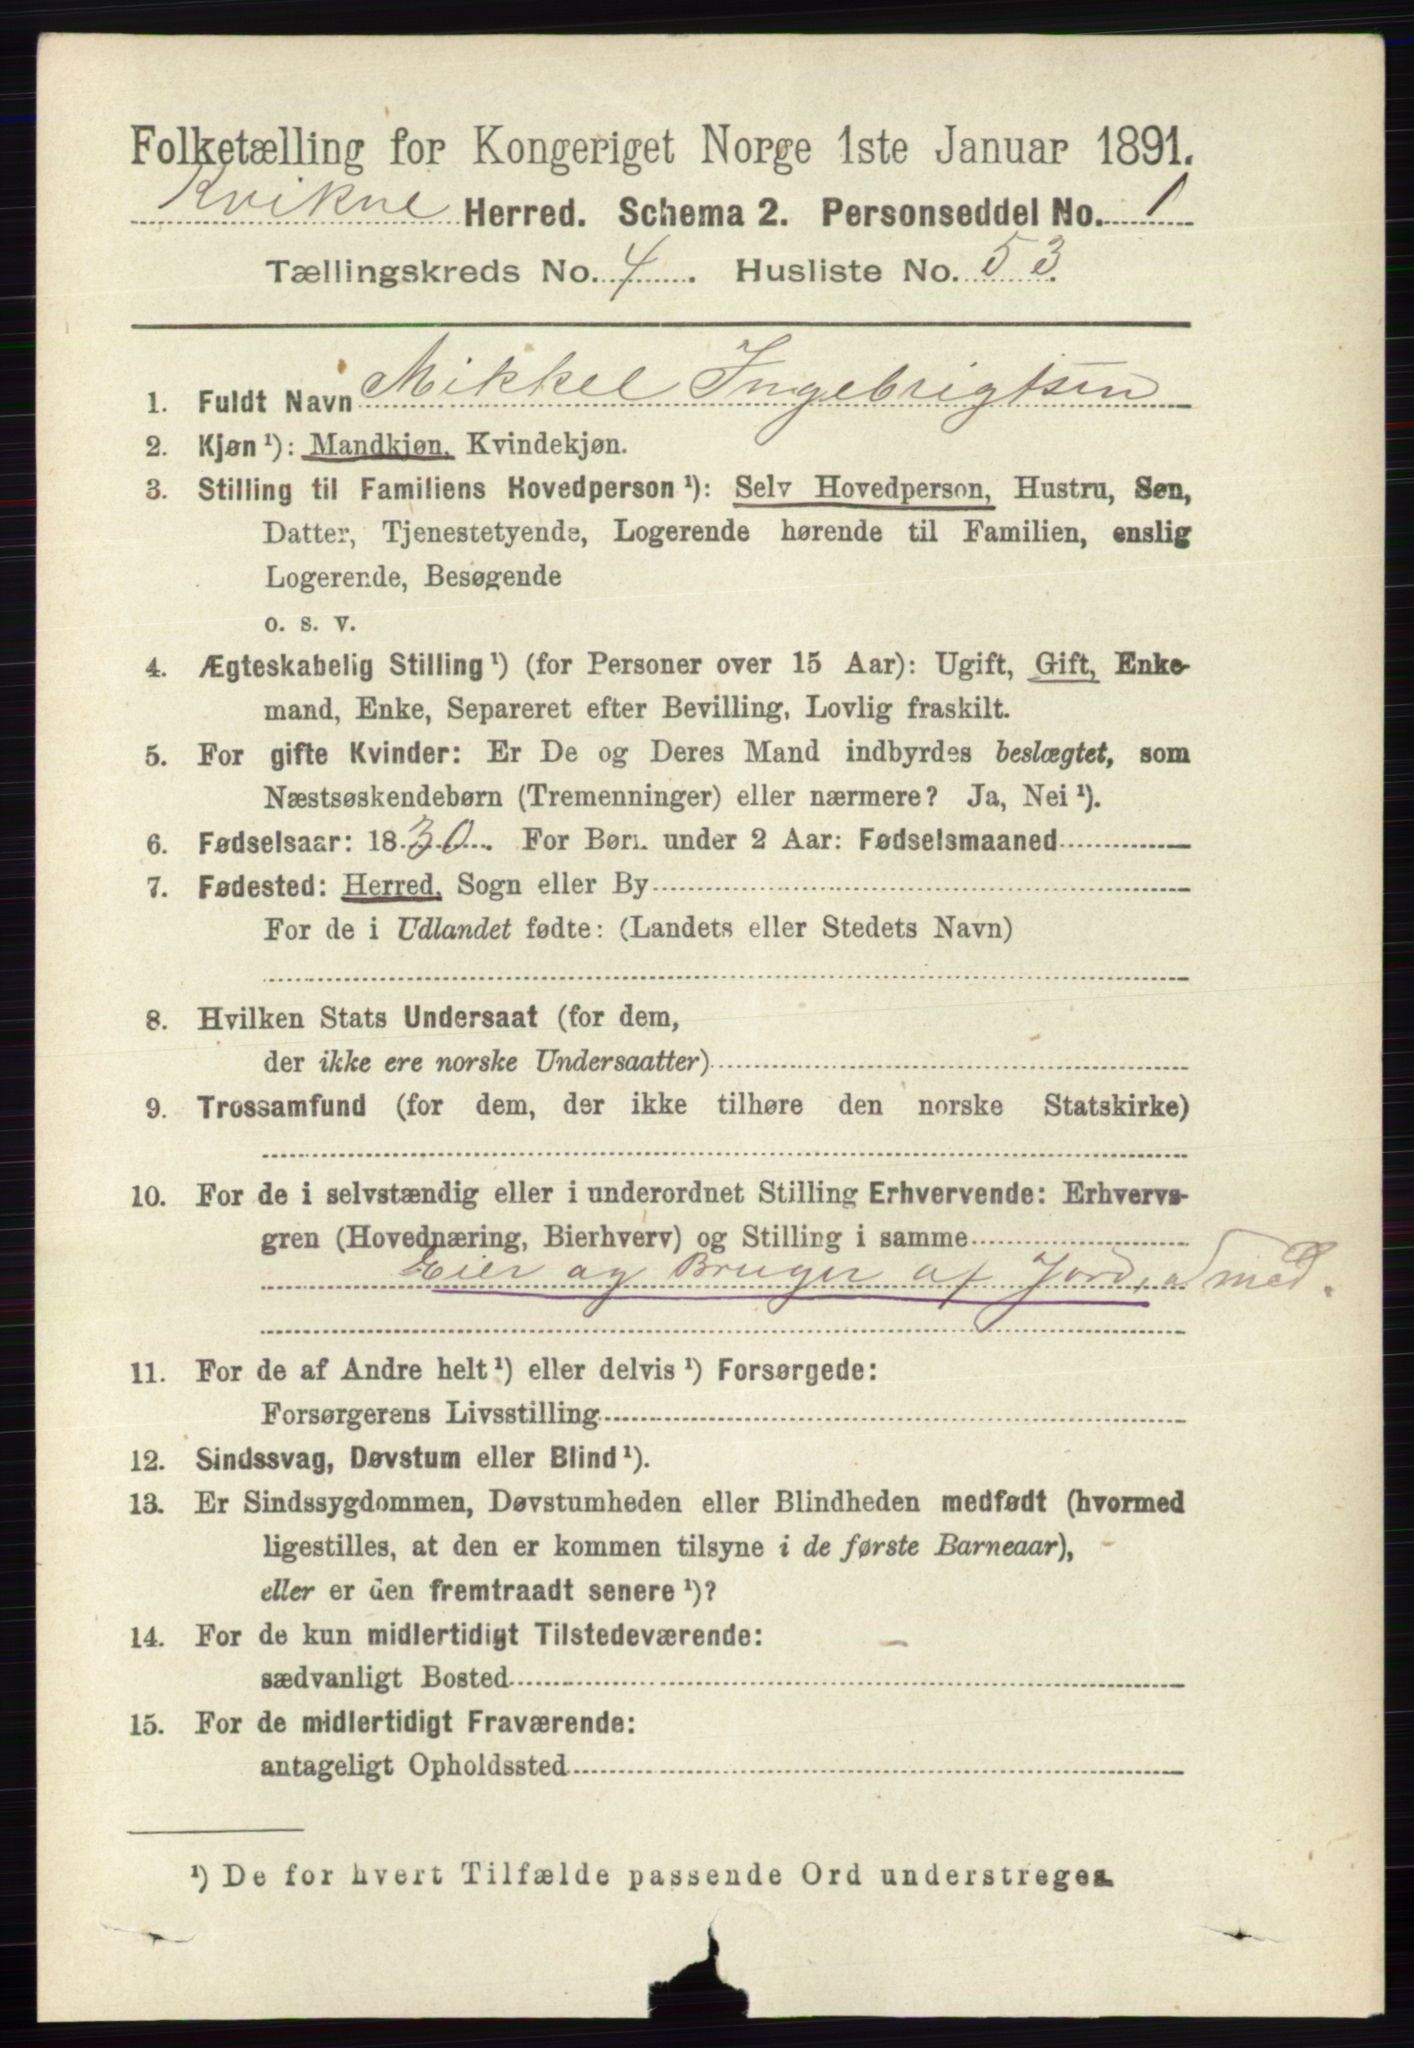 Folketælling for Kongeriget Norge 1ste Januar 1891.
Kvikne Herred. Schema 2. Personseddel No. 1
Tællingskreds No. 4. Husliste No. 53
1. Fuldt Navn Mikkel Ingebrigtsen
2. Kjøn ¹): Mandkjøn, Kvindekjøn.
3. Stilling til Familiens Hovedperson ¹): Selv Hovedperson, Hustru, Søn,
Datter, Tjenestetyende, Logerende hørende til Familien, enslig
Logerende, Besøgende
o. s. v.
4. Ægteskabelig Stilling ¹) (for Personer over 15 Aar): Ugift, Gift, Enke-
mand, Enke, Separeret efter Bevilling, Lovlig fraskilt.
5. For gifte Kvinder: Er De og Deres Mand indbyrdes beslægtet, som
Næstsøskendebørn (Tremenninger) eller nærmere? Ja, Nei ¹).
6. Fødselsaar: 1830. For Børn under 2 Aar: Fødselsmaaned
7. Fødested: Herred, Sogn eller By
For de i Udlandet fødte: (Landets eller Stedets Navn)
8. Hvilken Stats Undersaat (for dem,
der ikke ere norske Undersaatter)
9. Trossamfund (for dem, der ikke tilhøre den norske Statskirke)
10. For de i selvstændig eller i underordnet Stilling Erhvervende: Erhvervs-
gren (Hovednæring, Bierhverv) og Stilling i samme
Eier og Bruger af Jord, Smed.
11. For de af Andre helt ¹) eller delvis ¹) Forsørgede:
Forsørgerens Livsstilling
12. Sindssvag, Døvstum eller Blind ¹).
13. Er Sindssygdommen, Døvstumheden eller Blindheden medfødt (hvormed
ligestilles, at den er kommen tilsyne i de første Barneaar),
eller er den fremtraadt senere ¹)?
14. For de kun midlertidigt Tilstedeværende:
sædvanligt Bosted
15. For de midlertidigt Fraværende:
antageligt Opholdssted
¹) De for hvert Tilfælde passende Ord understreges.